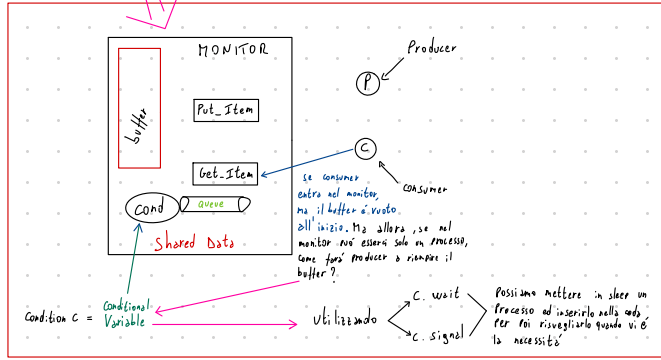 MONITOR
Producer
P
buffer
Put_Item
C
Get_Item
consumer
cond
queue
Shared Data
se consumer
entra nel monitor,
ma il buffer é vuoto
all'inizio. Ma allora, se nel
monitor può esserci solo un processo,
come farà producer a riempire il
buffer?
Condition C =
Conditional
Variable
utilizzando
C. wait
C. signal
Possiamo mettere in sleep un
Processo ed inserirlo nella coda,
per poi risvegliarlo quando vi é
la necessità